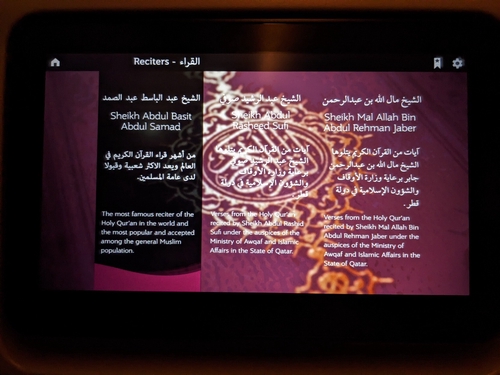 Reciters - القراء
الشيخ عبد الباسط عبد الصمد
Sheikh Abdul Basit
Abdul Samad
من أشهر قراء القرآن الكريم في
العالم ويعد الاكثر شعبية وقبولا
لدى عامة المسلمين.
The most famous reciter of the
Holy Qur'an in the world and
the most popular and accepted
among the general Muslim
population.
الشيخ عبد الرشيد صوفي
Sheikh Abdul
Rasheed Sufi
آيات من القرآن الكريم يتلوها
الشيخ عبد الرشيد صوفي
برعاية وزارة الأوقاف
والشؤون الإسلامية في دولة
قطر.
Verses from the Holy Qur'an
recited by Sheikh Abdul Rashid
Sufi under the auspices of the
Ministry of Awqaf and Islamic
Affairs in the State of Qatar.
الشيخ مال الله بن عبدالرحمن
Sheikh Mal Allah Bin
Abdul Rehman Jaber
آيات من القرآن الكريم يتلوها
الشيخ مال الله بن عبدالرحمن
جابر برعاية وزارة الأوقاف
والشؤون الإسلامية في دولة
قطر.
Verses from the Holy Qur'an
recited by Sheikh Mal Allah Bin
Abdul Rehman Jaber under the
auspices of the Ministry of
Awqaf and Islamic Affairs in the
State of Qatar.